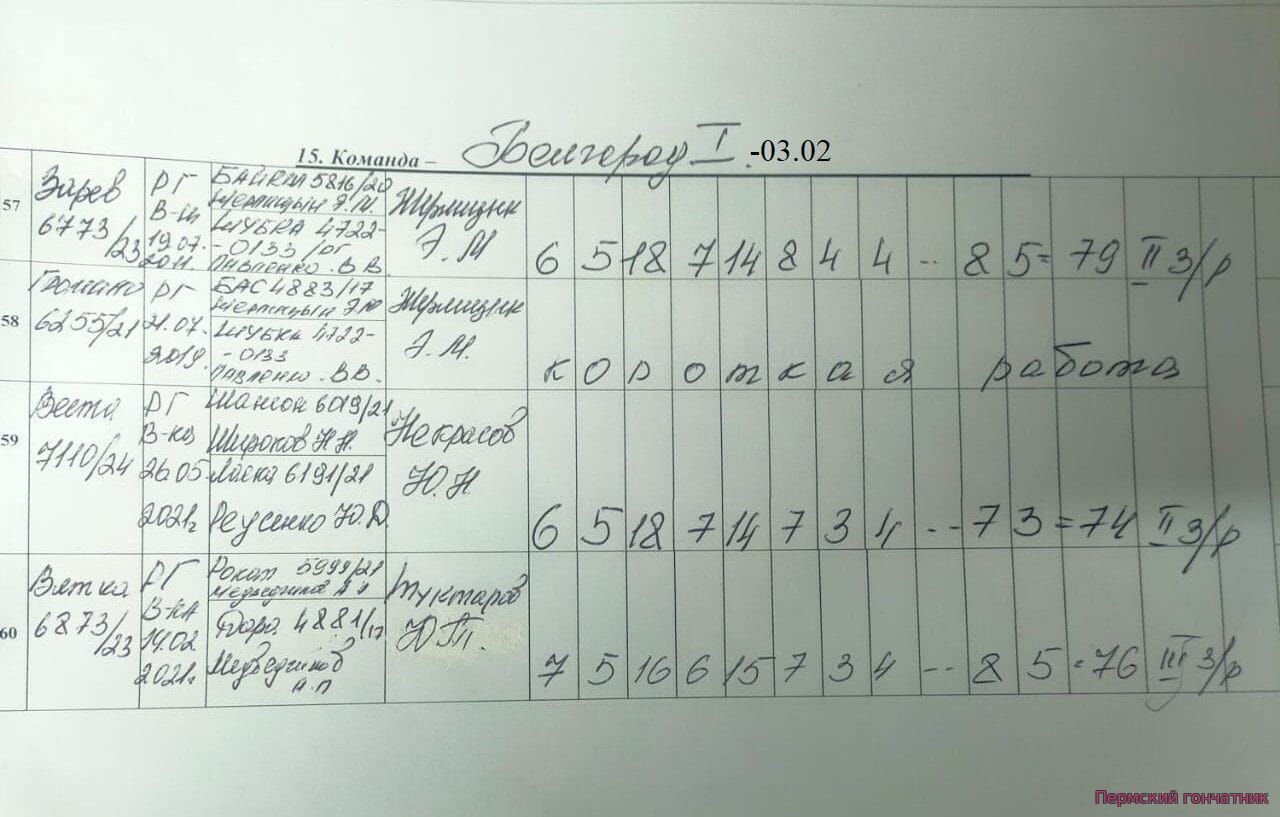 15. Команда – Белгород I -03.02
57 Зарев 6773/23 РГ В-ц 19.07. БАЙКАЛ 5816/20 Э.М. ШУБКА 4722--0133/рг Павленко.В.В. Э.М 6 5 18 7 14 8 4 4 -- 8 5= 79 II з/р
58 6255/21 РГ 21.07. 2019. БАС 4883/17 ШУБКА 4722--0133 Павленко.В.В. Э.М. короткая работа
59 Веста 7110/24 РГ 26.05. 2021г Шансон 6019/21 Широков Н.Н. Ласка 6191/21 Реусенко Ю.Д. Некрасов Ю.Н. 6 5 18 7 14 7 3 4 -- 7 3 =74 II з/р
60 Вятка 6873/23 РГ 14.02 2021г 5999/21 4881/17 Туктаров 7 5 16 6 15 7 3 4 -- 8 5 =76 III з/р
Пермский гончатник